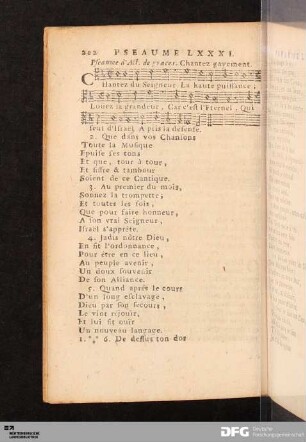 212 PSEAUME LXXXI.
Pseaume d'Act. de graces. Chantez gayement.
CHantez du Seigneur La haute puissance;
Louez la grandeur, Car c'est l'Eternel, Qui
seul d'Israël A pris la défense.
2. Que dans vos Chansons
Toute la Musique
Epuise ses tons
Et que, tour à tour,
Et fiffre & tambour
Soient de ce Cantique.
3. Au premier du mois,
Sonnez la trompette;
Et toutes les fois,
Que pour faire honneur,
A son vrai Seigneur,
Israël s'apprête.
4. Jadis nôtre Dieu,
En fit l'ordonnance,
Pour être en ce lieu,
Au peuple avenir,
Un doux souvenir
De son Alliance.
5. Quand après le cours
D'un long esclavage,
Dieu par son secours,
Le vint réjouir,
Et lui fit ouïr
Un nouveau langage.
1. *,* 6. De dessus ton dos
DFG Deutsche
Forschungsgemeinschaft